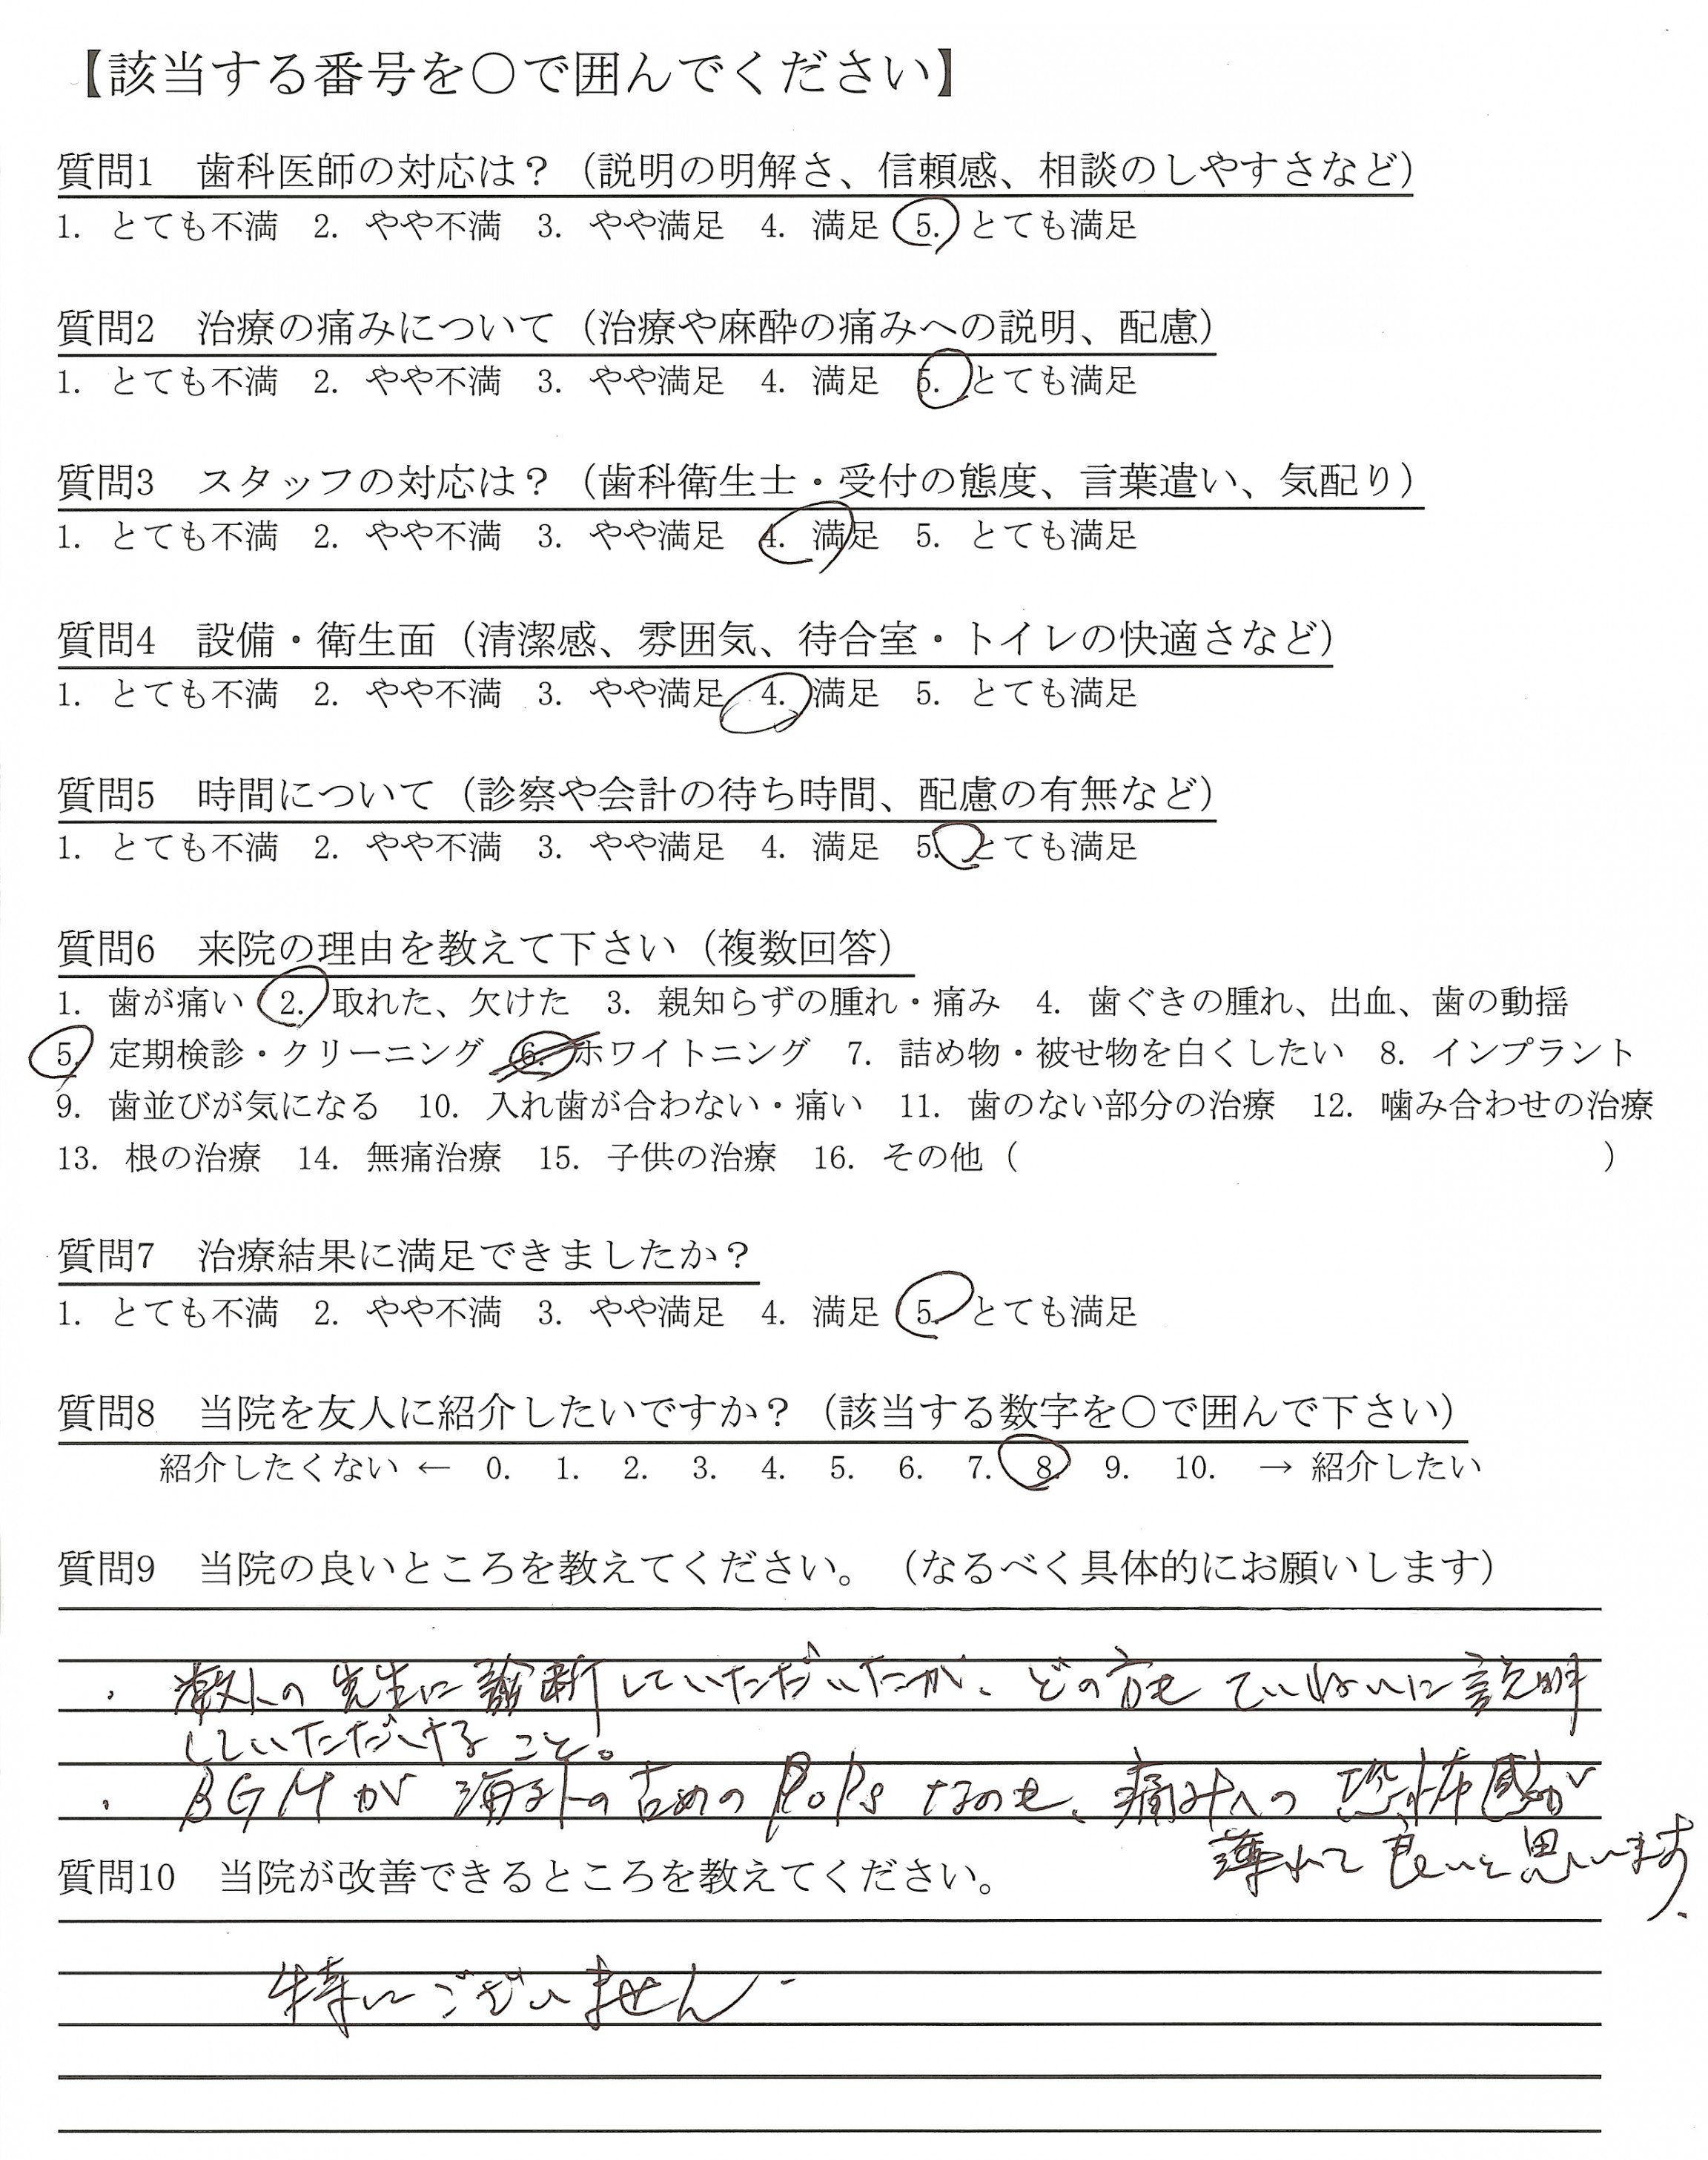 【該当する番号を○で囲んでください】
質問1　歯科医師の対応は？（説明の明解さ、信頼感、相談のしやすさなど）
1. とても不満　2. やや不満　3. やや満足　4. 満足　5. とても満足
質問2　治療の痛みについて（治療や麻酔の痛みへの説明、配慮）
1. とても不満　2. やや不満　3. やや満足　4. 満足　5. とても満足
質問3　スタッフの対応は？（歯科衛生士・受付の態度、言葉遣い、気配り）
1. とても不満　2. やや不満　3. やや満足　4. 満足　5. とても満足
質問4　設備・衛生面（清潔感、雰囲気、待合室・トイレの快適さなど）
1. とても不満　2. やや不満　3. やや満足　4. 満足　5. とても満足
質問5　時間について（診察や会計の待ち時間、配慮の有無など）
1. とても不満　2. やや不満　3. やや満足　4. 満足　5. とても満足
質問6　来院の理由を教えて下さい（複数回答）
1. 歯が痛い　2. 取れた、欠けた　3. 親知らずの腫れ・痛み　4. 歯ぐきの腫れ、出血、歯の動揺
5. 定期検診・クリーニング　6. ホワイトニング　7. 詰め物・被せ物を白くしたい　8. インプラント
9. 歯並びが気になる　10. 入れ歯が合わない・痛い　11. 歯のない部分の治療　12. 噛み合わせの治療
13. 根の治療　14. 無痛治療　15. 子供の治療　16. その他（　　　）
質問7　治療結果に満足できましたか？
1. とても不満　2. やや不満　3. やや満足　4. 満足　5. とても満足
質問8　当院を友人に紹介したいですか？（該当する数字を○で囲んで下さい）
紹介したくない ← 0. 1. 2. 3. 4. 5. 6. 7. 8. 9. 10. → 紹介したい
質問9　当院の良いところを教えてください。（なるべく具体的にお願いします）
・数人の先生に診断していただいたが、どの方もていねいに説明
していただけること。
・BGMが海外の古めのPoPsなのも、痛みへの恐怖感が
薄れて良いと思います。
質問10　当院が改善できるところを教えてください。
特にございません